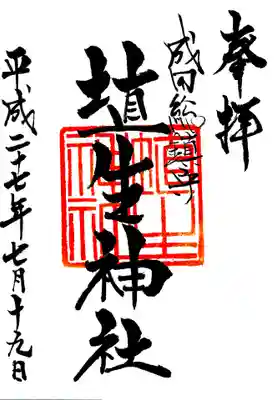 奉拝
成田総鎮守
埴生神社
平成二十七年七月十九日